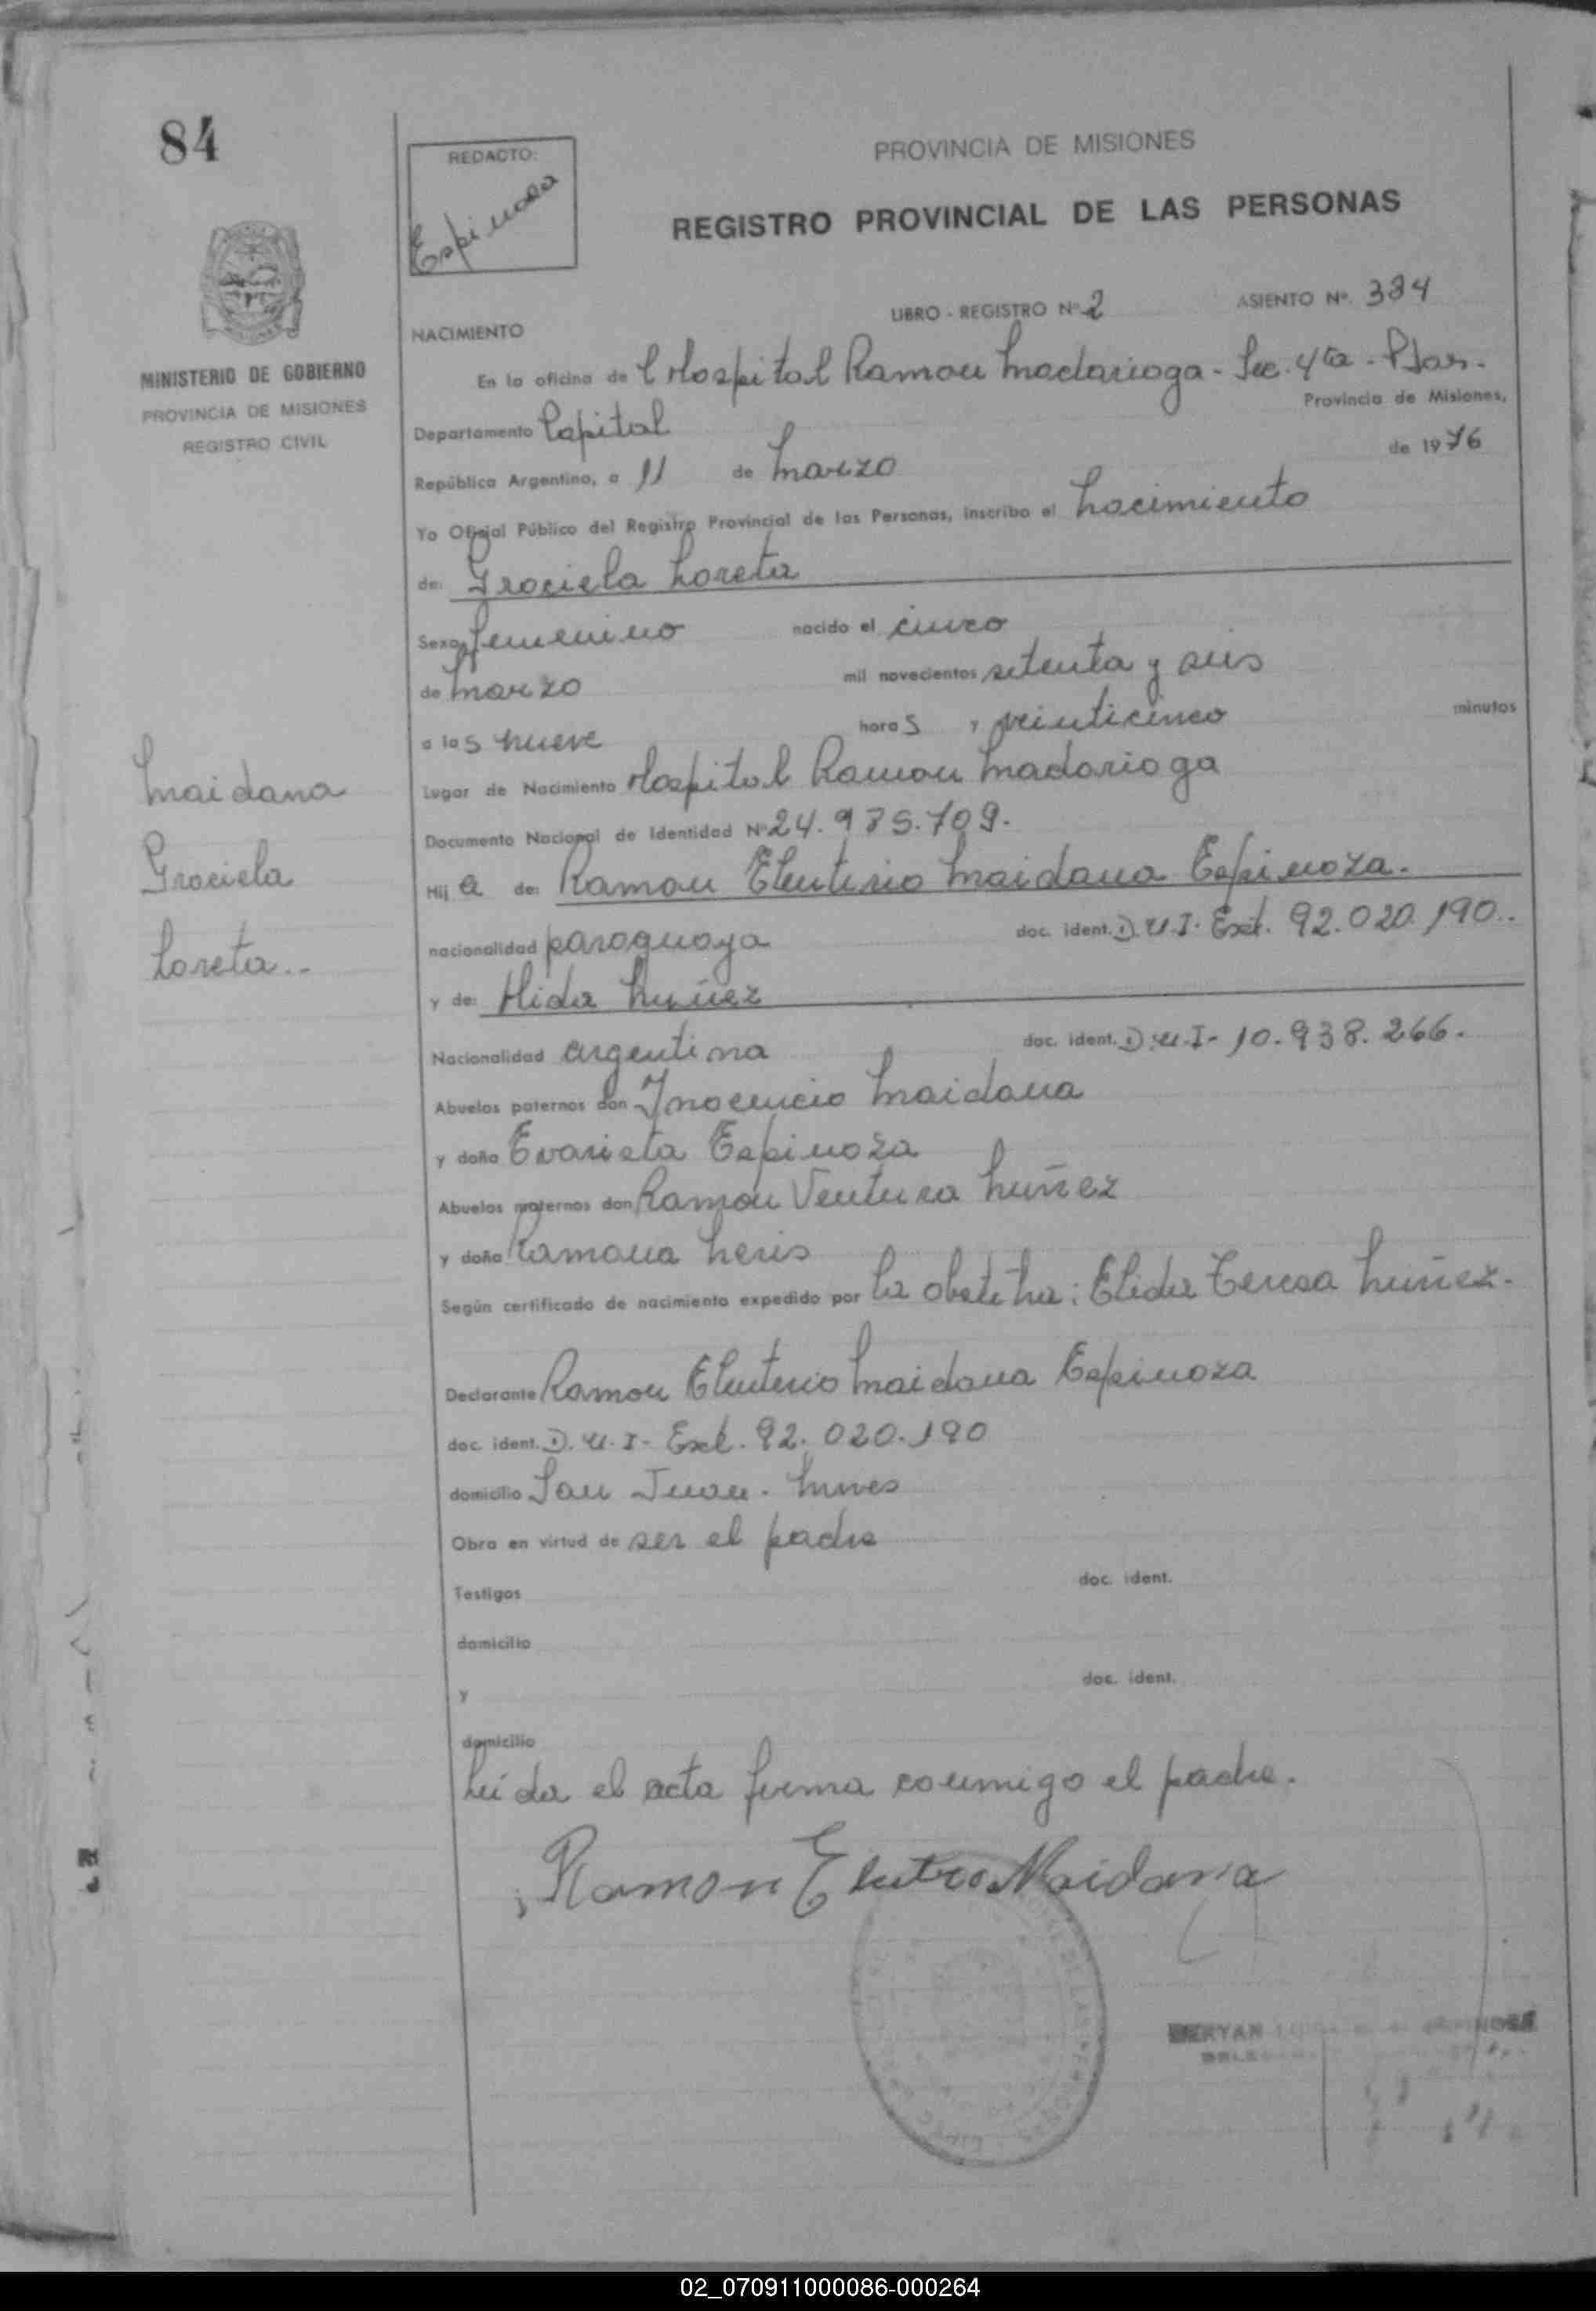 84
REDACTO:
Espinosa
PROVINCIA DE MISIONES
REGISTRO PROVINCIAL DE LAS PERSONAS
LIBRO - REGISTRO Nº 2
ASIENTO Nº. 334
NACIMIENTO
MINISTERIO DE GOBIERNO
PROVINCIA DE MISIONES
REGISTRO CIVIL
En la oficina del Hospital Ramon Madariaga - Sec. 4ta - Pdas.
Provincia de Misiones,
Departamento Capital
República Argentina, a 11 de Marzo de 1976
Yo Oficial Público del Registro Provincial de las Personas, inscribo el Nacimiento
de: Graciela Loreta
Sexo femenino nacido el cinco
de Marzo mil novecientos setenta y seis
a las nueve horas y veinticinco minutos
Lugar de Nacimiento Hospital Ramon Madariaga
Documento Nacional de Identidad Nº 24.975.709.
Maidana
Graciela
Loreta..
Hija de: Ramon Eleuterio Maidana Espinoza.
nacionalidad paraguaya doc. ident. D.U.I. Ext. 92.020.190..
y de: Hida Nuñez
Nacionalidad argentina doc. ident. D.U.I- 10.938.266.
Abuelos paternos don Inocencio Maidana
y doña Evarista Espinoza
Abuelos maternos don Ramon Ventura Nuñez
y doña Ramona Neris
Según certificado de nacimiento expedido por La obstetra: Elida Teresa Nuñez.
Declarante Ramon Eleuterio Maidana Espinoza
doc. ident. D.U.I- Ext. 92.020.190
domicilio San Juan.
Obra en virtud de ser el padre
Testigos doc. ident.
domicilio
y doc. ident.
domicilio
Leída el acta firma conmigo el padre.
Ramon Elutrio Maidana
02_070911000086-000264